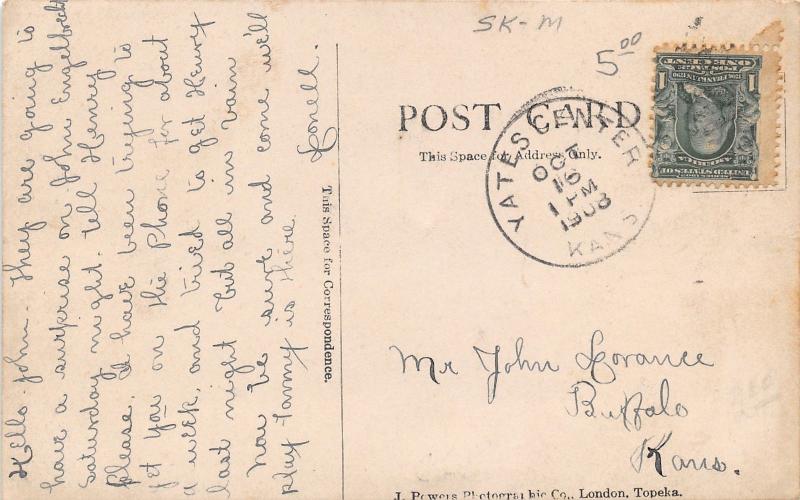 SK-M
5 00
POST CARD
This Space for Address Only.
YATES CENTER
OCT
16
1 PM
1908
KANS.
ONE CENT
1
1
UNITED STATES OF AMERICA
Hello John. They are going to
have a surprise on John Engelbrecht
Saturday night. tell Henry
please. I have been trying to
get you on the Phone for about
a week, and tried to get Henry
last night but all in vain
now be sure and come we'll
play Tammy is there.
Lonell.
This Space for Correspondence.
Mr John Lorance
Buffalo
Kans.
J. Powers Photographic Co., London, Topeka.